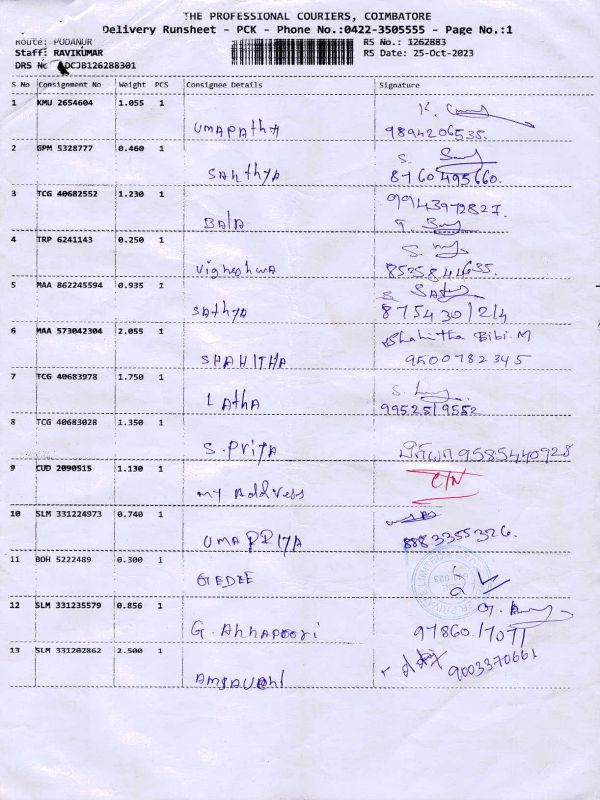 THE PROFESSIONAL COURIERS, COIMBATORE
Delivery Runsheet - PCK - Phone No.:0422-3505555 - Page No.:1
Route: PODANUR
RS No.: 1262883
Staff: RAVIKUMAR
RS Date: 25-Oct-2023
DRS No DCJB126288301
S No Consignment No Weight PCS Consignee Details Signature
1 KMU 2654604 1.055 1
UMAPATHA 9894206535
2 GPM 5328777 0.460 1
SANTHYA 8760495660.
3 TCG 40682552 1.230 1
9943972827.
BALA
4 TRP 6241143 0.250 1
Vigneshwa 8525844635.
5 MAA 862245594 0.935 1
Sathya 8754301214
6 MAA 573042304 2.055 1
Shahitha Bibi.M
SHAHITHA 9500782345
7 TCG 40683978 1.750 1
LAthA 9952519552
8 TCG 40683028 1.350 1
S.Priya 9585440928
9 CUD 2090515 1.130 1
C/N
my Address
10 SLM 331224973 0.740 1
UMAPRIYA 8883355326.
11 BOH 5222489 0.300 1
GEDEE
12 SLM 331235579 0.856 1
G. Annapoori 9786017071
13 SLM 331202862 2.500 1
9003370661